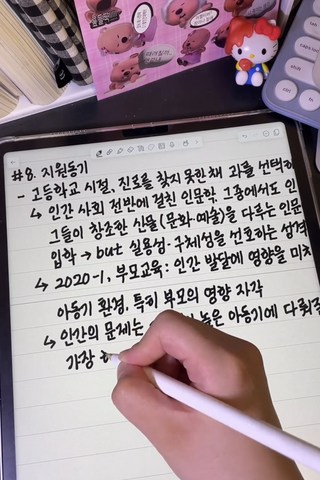 #8. 지원동기
- 고등학교 시절, 진로를 찾지 못한채 과를 선택하
↳ 인간 사회 전반에 걸친 인문학, 그중에서도 인
그들이 창조한 산물(문화·예술)을 다루는 인문
입학 → but 실용성·구체성을 선호하는 성격
↳ 2020-1, 부모교육: 인간 발달에 영향을 미치
아동기 환경, 특히 부모의 영향 자각
↳ 인간의 문제는 높은 아동기에 다뤄
가장